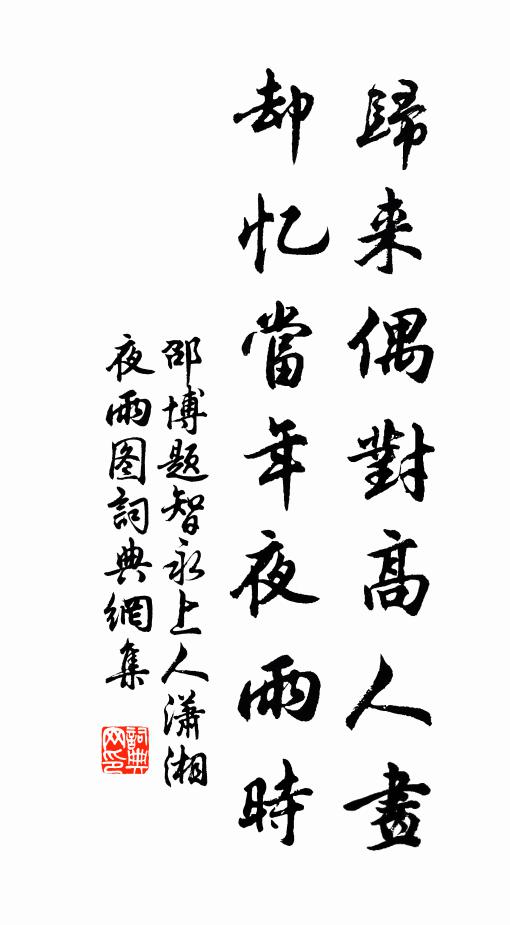 歸来偶對高人畫
却忆當年夜雨時
邵博题智永上人瀟湘
夜雨图詞典網集
詞典网印